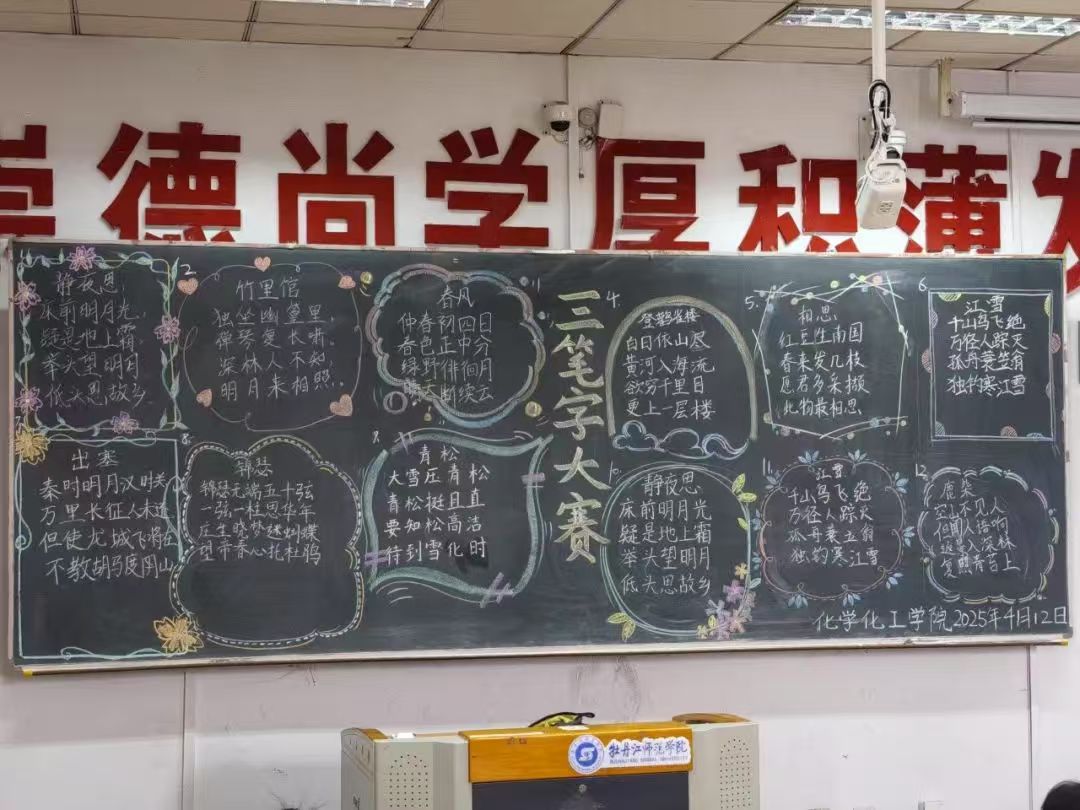 崇德尚学厚积薄发
三笔字大赛
1.
静夜思
床前明月光,
疑是地上霜.
举头望明月
低头思故乡.
2.
竹里馆
独坐幽篁里,
弹琴复长啸.
深林人不知,
明月来相照.
春风
仲春初四日
春色正中分
绿野徘徊月
晴天断续云
4.
登鹳雀楼
白日依山尽
黄河入海流
欲穷千里目
更上一层楼
5.
相思
红豆生南国
春来发几枝
愿君多采撷
此物最相思
6.
江雪
千山鸟飞绝
万径人踪灭
孤舟蓑笠翁
独钓寒江雪
7.
出塞
秦时明月汉时关
万里长征人未还
但使龙城飞将在
不教胡马度阴山
8.
锦瑟
锦瑟无端五十弦
一弦一柱思华年
庄生晓梦迷蝴蝶
望帝春心托杜鹃
青松
大雪压青松
青松挺且直
要知松高洁
待到雪化时
10.
静夜思
床前明月光
疑是地上霜
举头望明月
低头思故乡
11.
江雪
千山鸟飞绝
万径人踪灭
孤舟蓑笠翁
独钓寒江雪
12.
鹿柴
空山不见人
但闻人语响
返景入深林
复照青苔上
化学化工学院2025年4月12日
牡丹江师范学院
MUDANJIANG NORMAL UNIVERSITY